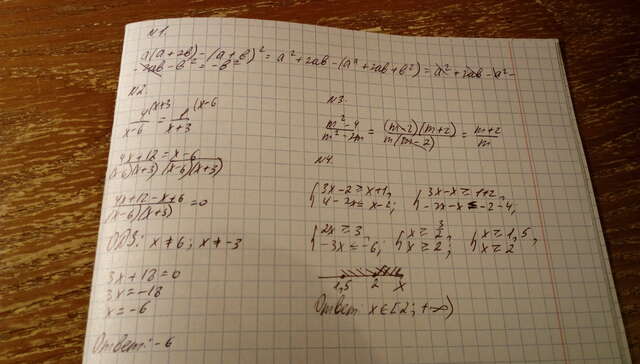 №1.
a(a+2b)-(a+b)² = a²+2ab-(a²+2ab+b²) = a²+2ab-a²-
-2ab-b² = -b²
№2.
4(x+3 / x-6 = 1(x-6 / x+3
4x+12 / (x-6)(x+3) = x-6 / (x-6)(x+3)
4x+12-x+6 / (x-6)(x+3) = 0
ОДЗ: x≠6; x≠-3
3x+18=0
3x=-18
x=-6
Ответ: -6
№3.
m²-4 / m²-2m = (m-2)(m+2) / m(m-2) = m+2 / m
№4
{3x-2≥x+1, 4-2x≤x-2; {3x-x≥1+2, -2x-x≤-2-4;
{2x≥3, -3x≤-6; {x≥3/2, x≥2; {x≥1,5, x≥2
1,5 2 x
Ответ: x∈[2; +∞)